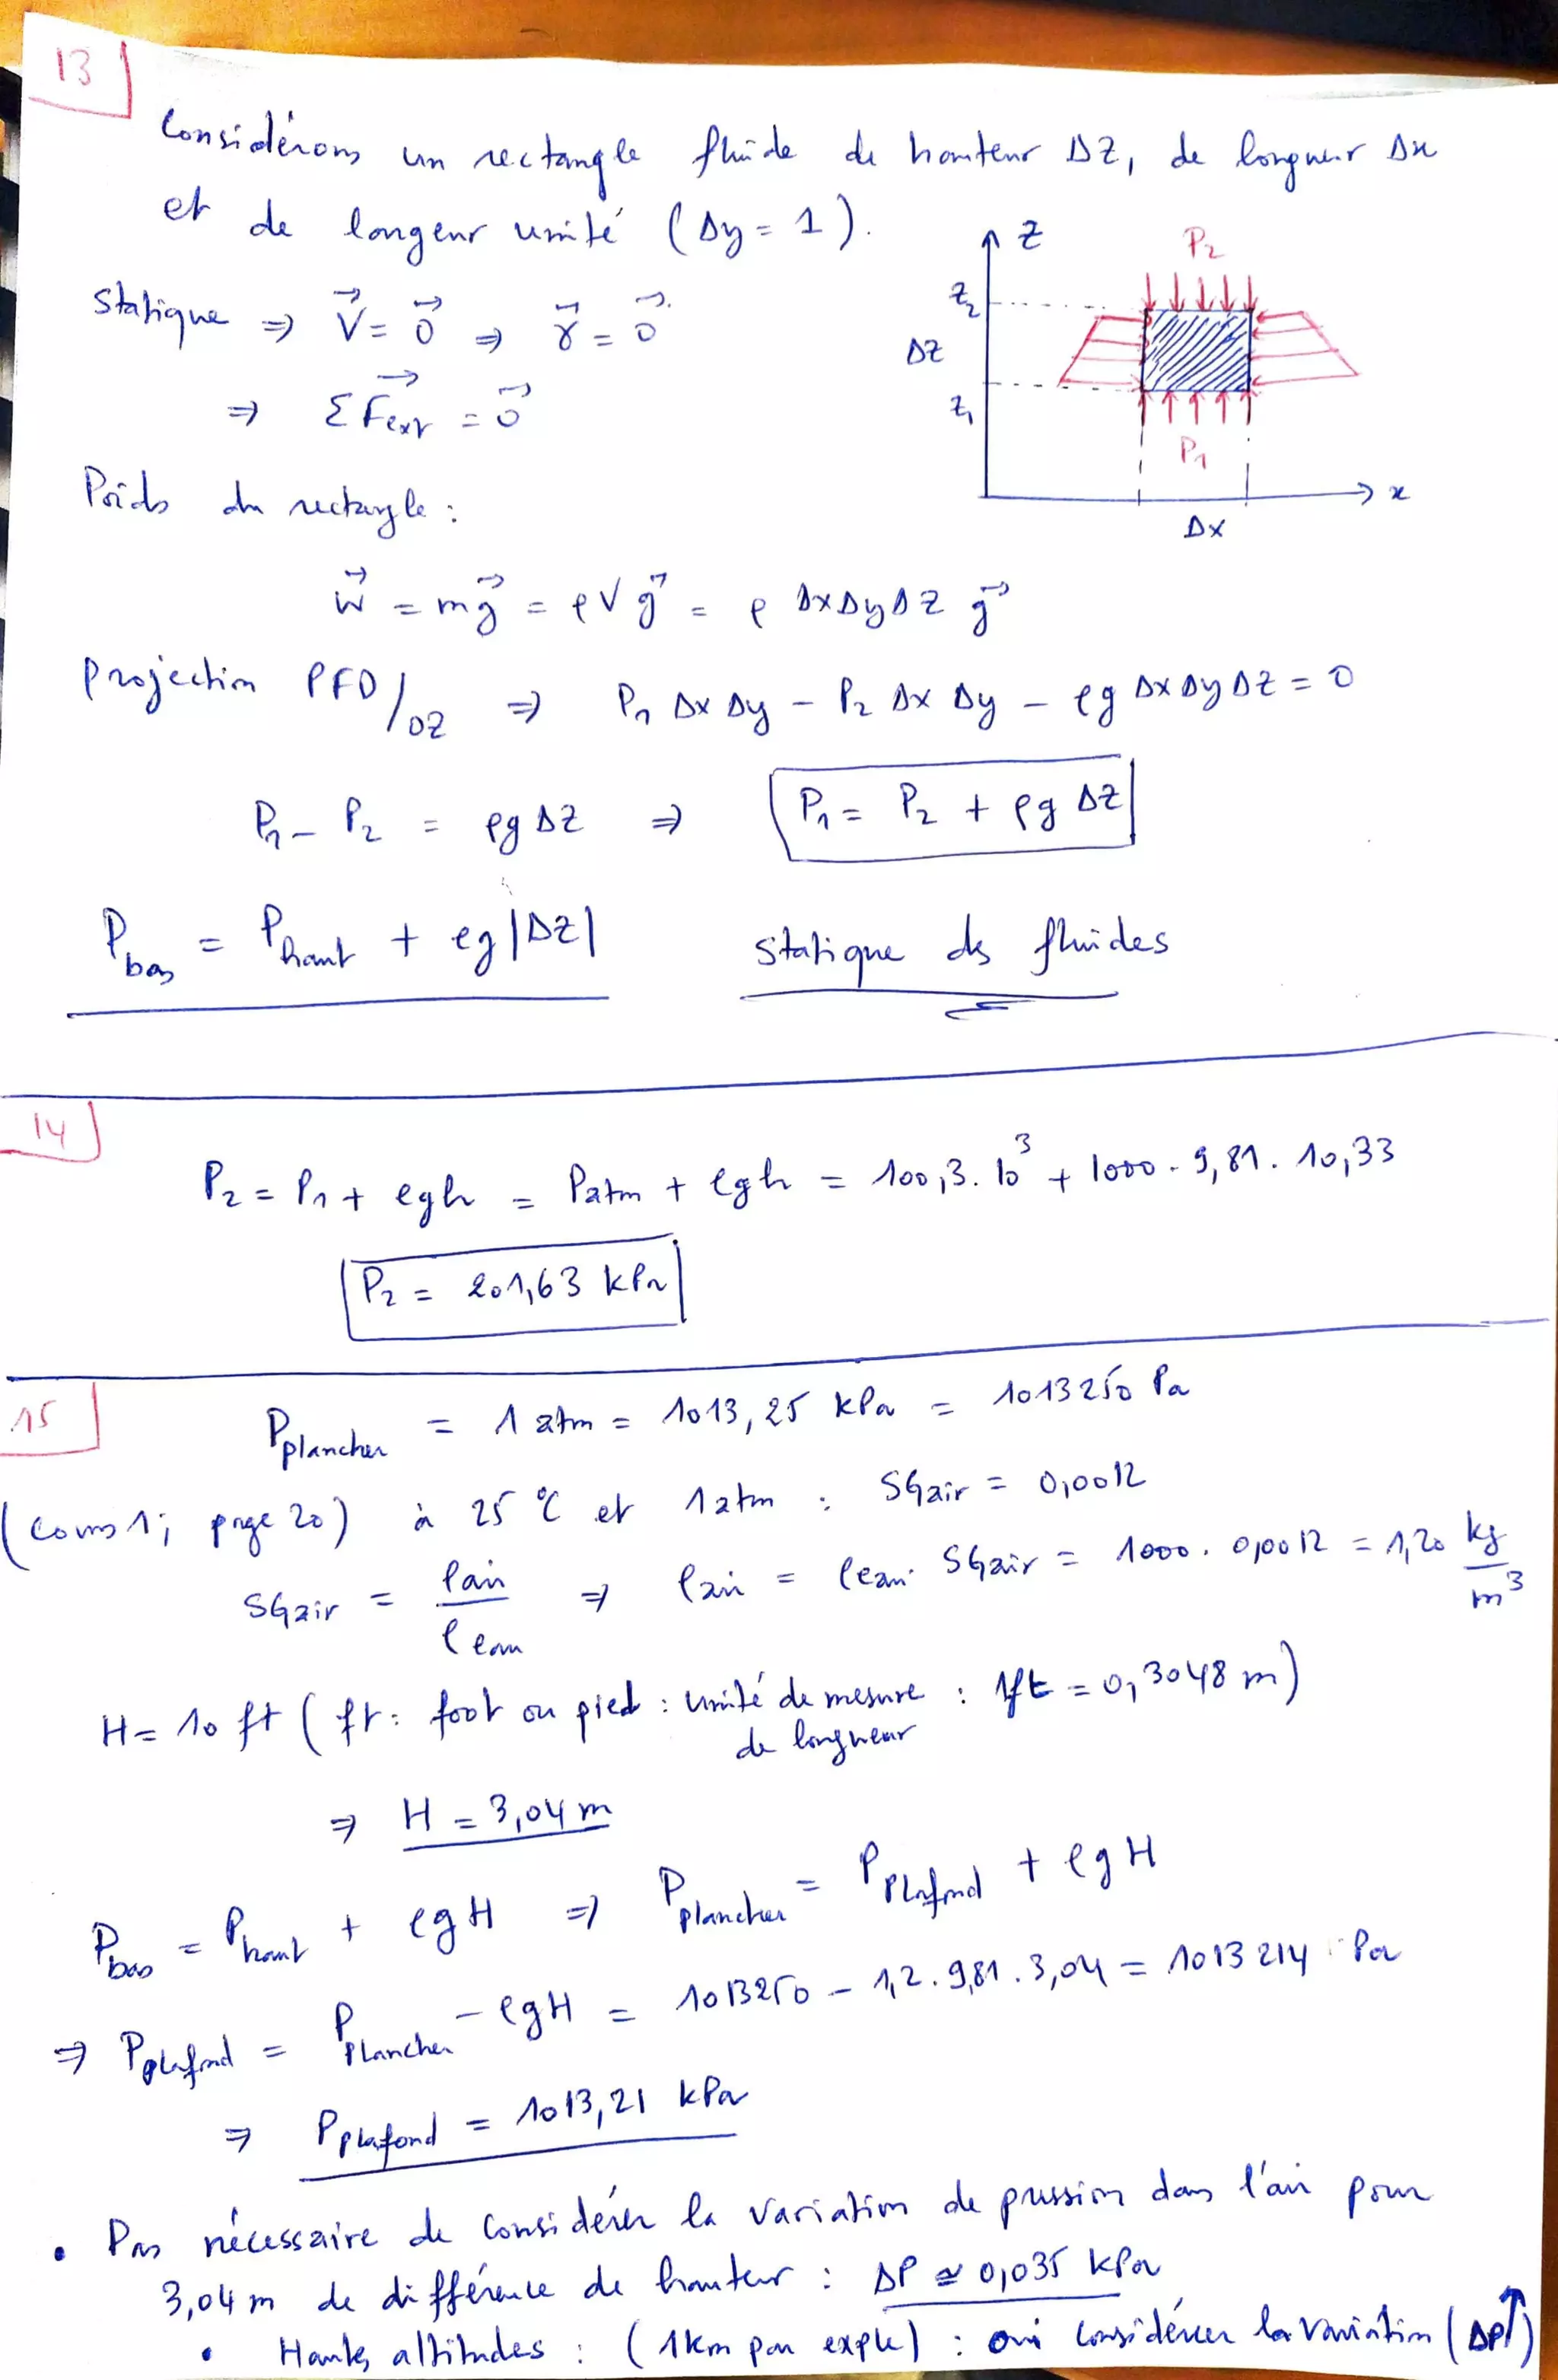 13
Considérons un rectangle fluide de hauteur ΔZ, de longueur Δx
et de longeur unité (Δy = 1).
Z
P₂
Z₂
ΔZ
Z₁
P₁
x
Δx
Statique ⇒ V⃗ = 0⃗ ⇒ γ⃗ = 0⃗.
⇒ ΣF⃗ext = 0⃗
Poids du rectangle :
W⃗ = mg⃗ = ρVg⃗ = ρ ΔxΔyΔZ g⃗
Projection PFD/OZ ⇒ P₁ Δx Δy − P₂ Δx Δy − ρg ΔxΔyΔZ = 0
P₁ − P₂ = ρgΔZ ⇒ P₁ = P₂ + ρg ΔZ
P bas = P haut + ρg|ΔZ| statique des fluides
14
P₂ = P₁ + ρgh = Patm + ρgh = 100,3. 10³ + 1000 . 9,81 . 10,33
P₂ = 201,63 kPa
15
P plancher = 1 atm = 1013,25 kPa = 1013250 Pa
(Cours 1; page 20) à 25 °C et 1 atm : SGair = 0,0012
SGair = ρair / ρeau ⇒ ρair = ρeau. SGair = 1000. 0,0012 = 1,20 kg/m³
H = 10 ft (ft : foot ou pied : unité de mesure : 1ft = 0,3048 m)
de longueur
⇒ H = 3,04 m
P bas = P haut + ρgH ⇒ P plancher = P Plafond + ρgH
⇒ P plafond = P Plancher − ρgH = 1013250 − 1,2 . 9,81 . 3,04 = 1013 214 Pa
⇒ P plafond = 1013,21 kPa
• Pas nécessaire de considérer la variation de pression dans l'air pour
3,04 m de différence de hauteur : ΔP ≃ 0,035 kPa
• Hautes altitudes : (1km par exple) : oui considérer la variation (ΔP↑)